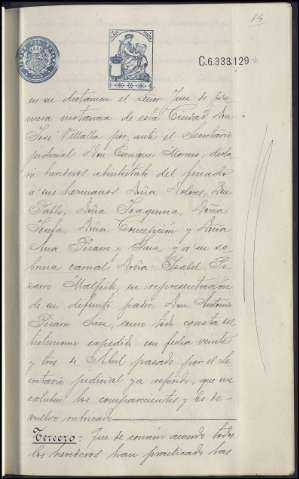 14
C.6.338.129
en su dictamen el Señor Juez de pri
mera instancia de esta Ciudad, Don
José Villalba por ante el Secretario
judicial Don Enrique decla
ró herederos abintestato del finado
a sus hermanos Doña Dolores, Don
Pablo, Doña Joaquina, Doña
Josefa, Doña Concepción y Doña
Ana y a su so
brina carnal Doña Isabel
en representación
de su difunto padre Don Antonio
como todo consta del
testimonio expedido en fecha veinte
y dos de Abril pasado por el Se
cretario judicial ya repetido, que me
exhiben los comparecientes y les de
vuelvo rubricado.
Tercero: Que de común acuerdo todos
los herederos han practicado las